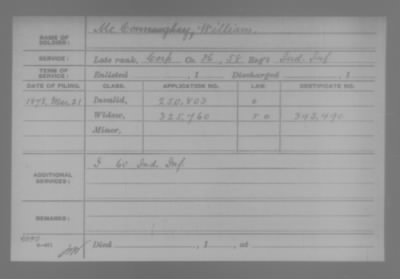 NAME OF SOLDIER: Mc Connaughey, William.
SERVICE: Late rank, Corp. Co. , 58 Reg't Ind. Inf
TERM OF SERVICE: Enlisted , 1 Discharged , 1
DATE OF FILING. CLASS. APPLICATION NO. LAW. CERTIFICATE NO.
1878, Mar. 21 Invalid, 250.803
Widow, 325,760 343,490
Minor,
ADDITIONAL SERVICES: 60 Ind. Inf
REMARKS:
Died , 1 , at